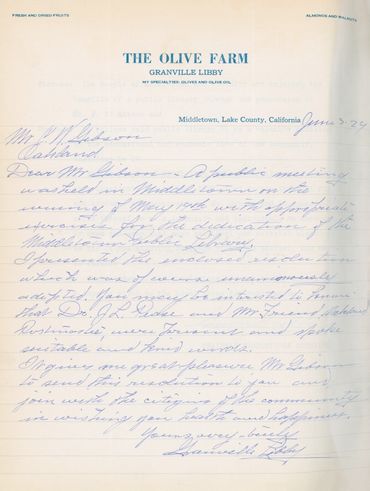 FRESH AND DRIED FRUITS
ALMONDS AND WALNUTS
THE OLIVE FARM
GRANVILLE LIBBY
MY SPECIALTIES: OLIVES AND OLIVE OIL
Middletown, Lake County, California June 3-29
Mr J. W. Gibson
Oakland.
Dear Mr Gibson - A public meeting
was held in Middletown on the
evening of May 19th with appropriate
exercises for the dedication of the
Middletown Public Library.
I presented the enclosed resolution
which was of course unanimously
adopted. You may be interested to know
that Dr. J. L. and Mr. Friend, Oakland
were present and spoke
suitable and kind words.
It gives me great pleasure Mr. Gibson
to send this resolution to you and
join with the citizens of the community
in wishing you health and happiness.
Yours very truly
Granville Libby